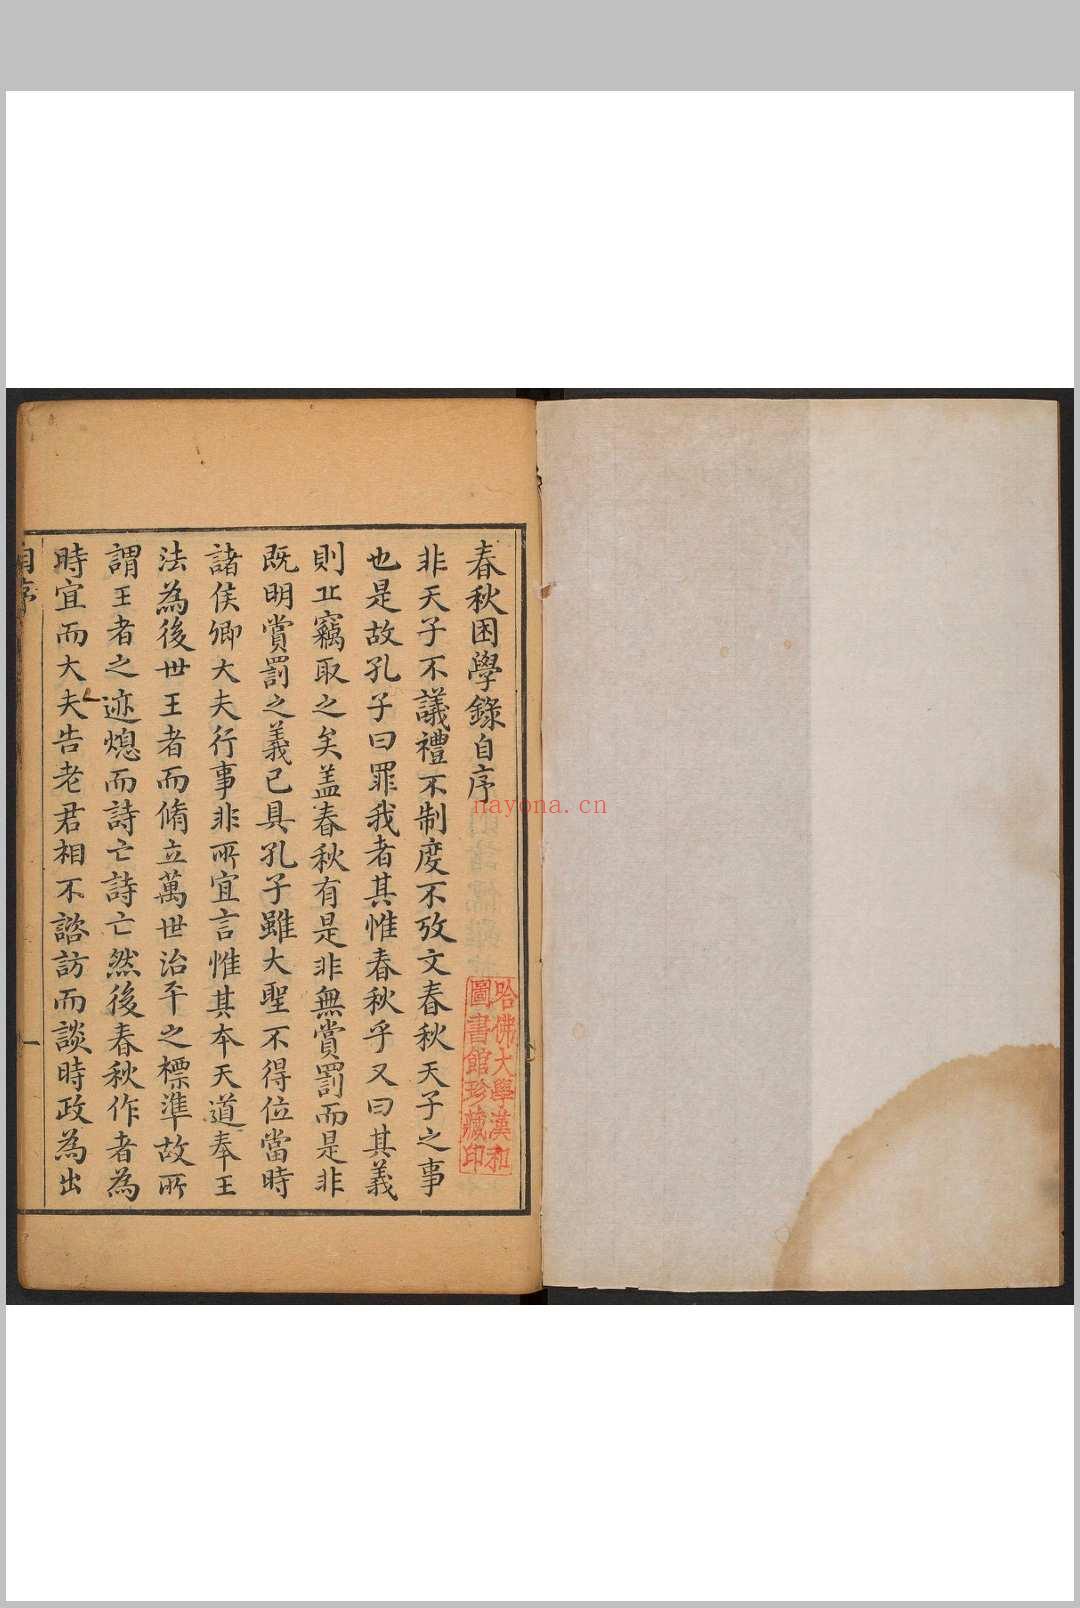 春秋困學錄自序
非天子不議禮不制度不攷文春秋天子之事
也是故孔子曰罪我者其惟春秋乎又曰其義
則丘竊取之矣盖春秋有是非無賞罰而是非
既明賞罰之義已具孔子雖大聖不得位當時
諸侯卿大夫行事非所宜言惟其本天道奉王
法為後世王者而脩立萬世治平之標準故所
謂王者之迹熄而詩亡詩亡然後春秋作者為
時宜而大夫告老君相不諮訪而談時政為出
自序
一
哈佛大學漢和
圖書館珍藏印
nayona.cn